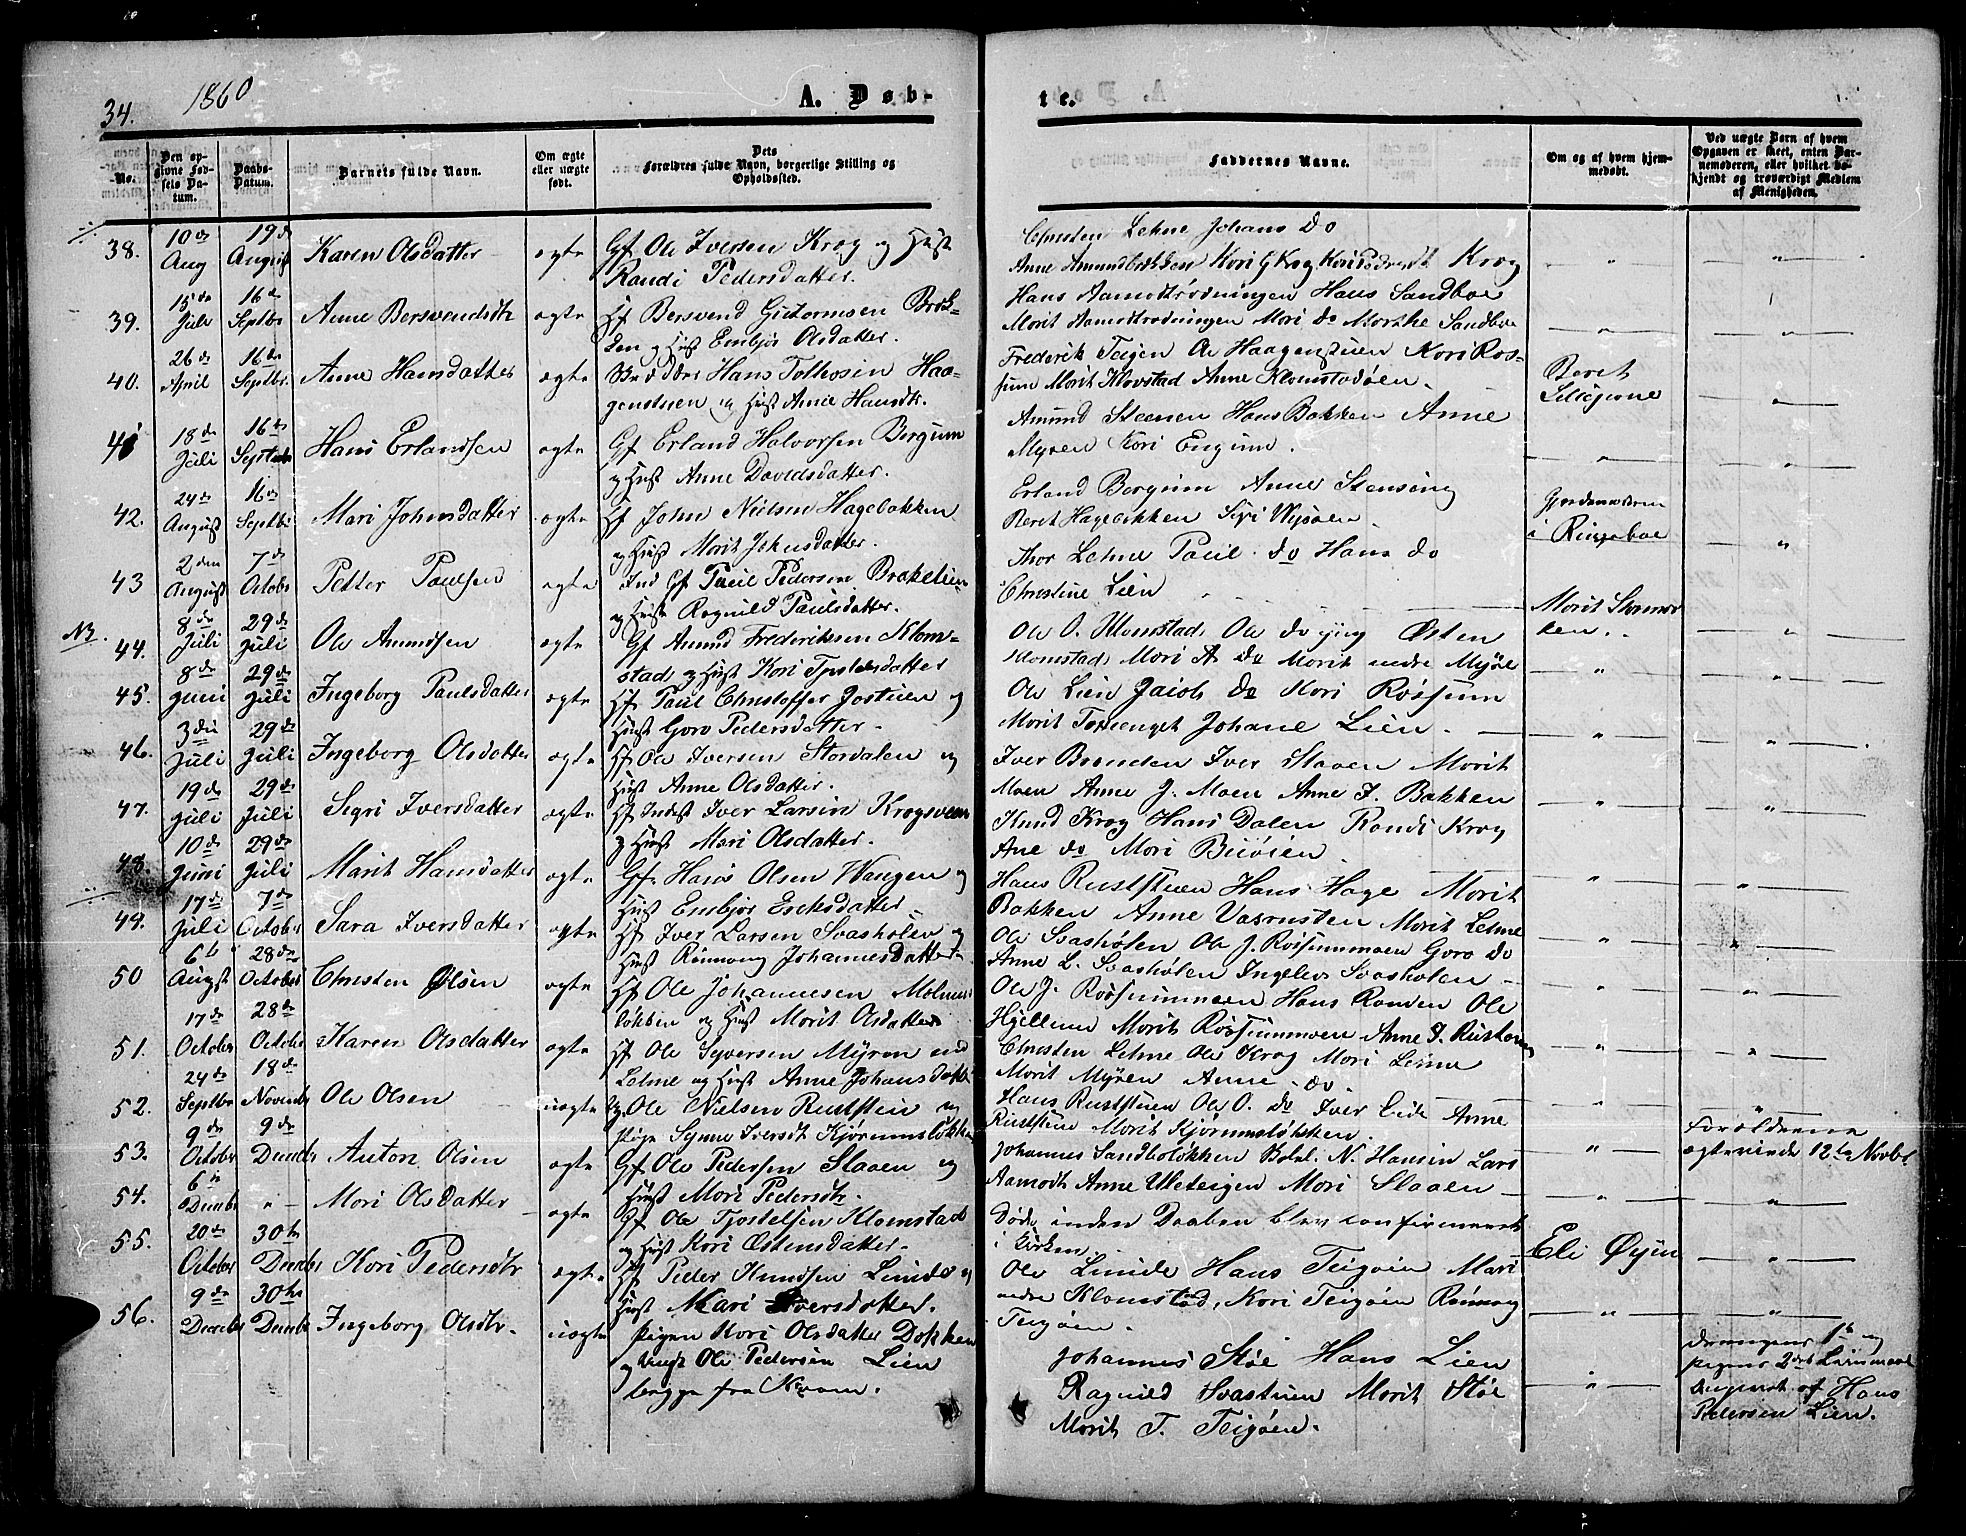 34.
1860
A. Døb-
te.
No.
Den opgivne Fødsels Datum.
Daabs-Datum.
Barnets fulde Navn.
Om ægte eller uægte født.
Dets Forældres fulde Navn, borgerlige Stilling og Opholdssted.
Faddernes Navne.
Om og af hvem hjemmedøbt.
Ved uægte Børn af hvem Opgaven er skeet, enten Barnemoderen, eller hvilket bekjendt og troværdigt Medlem af Menigheden.
38. 10de Aug 19de August Karen Olsdatter ægte Gf Ole Iversen Krog og Hust Randi Pedersdatter.
Christen Lehne Johans do
Anne Kari Krog
39. 15de Juli 16de Septbr Anne Bersvendsdtr ægte Hf Bersvend Guttormsen og Hust Embjør Olsdatter.
Hans Aamodtrødningen Hans Sandboe
Morit Aamodtrødningen Mori do Marthe Sandboe
40. 26de April 16de Septbr. Anne Hansdatter ægte Hans Haagenstuen og Hust Anne Hansdtr.
Frederik Teigen Ole Haagenstuen Kari Rossum Morit Klovstad Anne Klomstadøen.
Beret
41 18de Juli 16de Septbr Hans Erlandsen ægte Gf Erland Halvorsen Bergum og Hust Anne Davidsdatter.
Amund Steenen Hans Bakken Anne
Myren Kari Engum.
42. 24de August 16de Septbr Mari Johnsdatter ægte Hf John Nielsen Hagebakken og Hust Morit Johnsdatter.
Erland Bergum Anne Stensing
Beret Hagebakken Siri
Jordemoderen i Ringeboe
43 2den August 7de Octobr Petter Paulsen ægte Ind Gf Paul Pedersen og Hust Ragnild Paulsdatter.
Thor Lehne Paul do Hans do
Christine Lien
Morit
NB.
44. 8de Juli 29de Juli Ole Amundsen ægte Gf Amund Frederiksen Klomstad og Hust Kari
Ole O. Klomstad, Ole do yng Østen
Klomstad, Mari A do Morit nedre
45. 8de Juni 29de Juli Ingeborg Paulsdatter ægte Hf Paul Christoffer Jostuen og Hust Goro Pedersdatter.
Ole Lien Jacob do Kari Rossum
Morit Johane Lien.
46. 3die Juli 29de Juli Ingeborg Olsdatter ægte Hf Ole Iversen Stordalen og Hust Anne Olsdatter.
Iver Brenden Iver Slaaen Morit
Moen Anne J. Moen Anne I. Bakken
47. 19de Juli 29de Juli Sigri Iversdatter ægte Hf Inderst Iver Larsen Krogsveen og Hust Mari Olsdatter.
Knud Krog Hans Dalen Randi Krog
Ane do Mari
48. 10de Juni 29de Juli Marit Hansdatter ægte Gf Hans Olsen Wangen og Hust Embjør Eriksdatter
Hans Ruststuen Hans Hage Morit
Bakken Anne Morit Lehne
49. 17de Juli 7de October Sara Iversdatter ægte Hf Iver Larsen Svasholen og Hust Rønnoug Johannesdatter
Ole Svasholen Ole J. Rossummoen Goro do
Anne L. Svasholen Ingeleiv Svasholen
50 6te Augst 28de October Christen Olsen ægte Hf Ole Johannesen og Hust Morit Olsdatter
Ole J. Rossummoen Hans Randen Ole
Hjellum Morit Rossummoen Anne J.
51. 17de October 28de Octobr Karen Olsdatter ægte Hf Ole Syversen Myren und Lehne og Hust Anne Johansdatter
Christen Lehne Ole Krog Mari Lehne
Morit Myren Anne do.
52. 24de Septbr 18de Novembr Ole Olsen uægte Ole Nielsen Ruststuen og Pige Synne Iversdt Kjørumsløkken
Hans Ruststuen Ole O. do Iver Lide Anne
Ruststuen Morit Kjørumsløkken
Forældrene ægteviede 12te Novbr
53. 9de October 9de Decmbr Anton Olsen ægte Gf Ole Pedersen Slaaen og Hust Mari Pedersdtr.
Johannes Sandboløkken Lars
Aamodt Anne Uleteigen Mari Slaaen
54. 6te Decmbr Mari Olsdatter ægte Hf Ole Tjostelsen Klomstad og Hust Kari Østensdatter.
Døde inden Daaben blev confirmeret
i Kirken.
Eli Øyen
55. 20de October 30te Decmbr Kari Pedersdtr ægte Hf Peder Knudsen Linde og Hust Mari Iversdatter.
Ole Linde Hans Teigøen Mari
nedre Klomstad, Kari Teigøen Rønnoug
Teigøen.
56. 9de Decmbr 30te Decmbr Ingeborg Olsdtr. uægte Pigen Kari Olsdatter Dokken og Ungk Ole Pedersen Lien begge fra Kvam.
Johannes Støe Hans Lien
Ragnild Svastuen Morit Støe
Morit T. Teigøen.
Drengens 1te og pigens 2det Leiermaal Angivet af Hans Pedersen Lien.